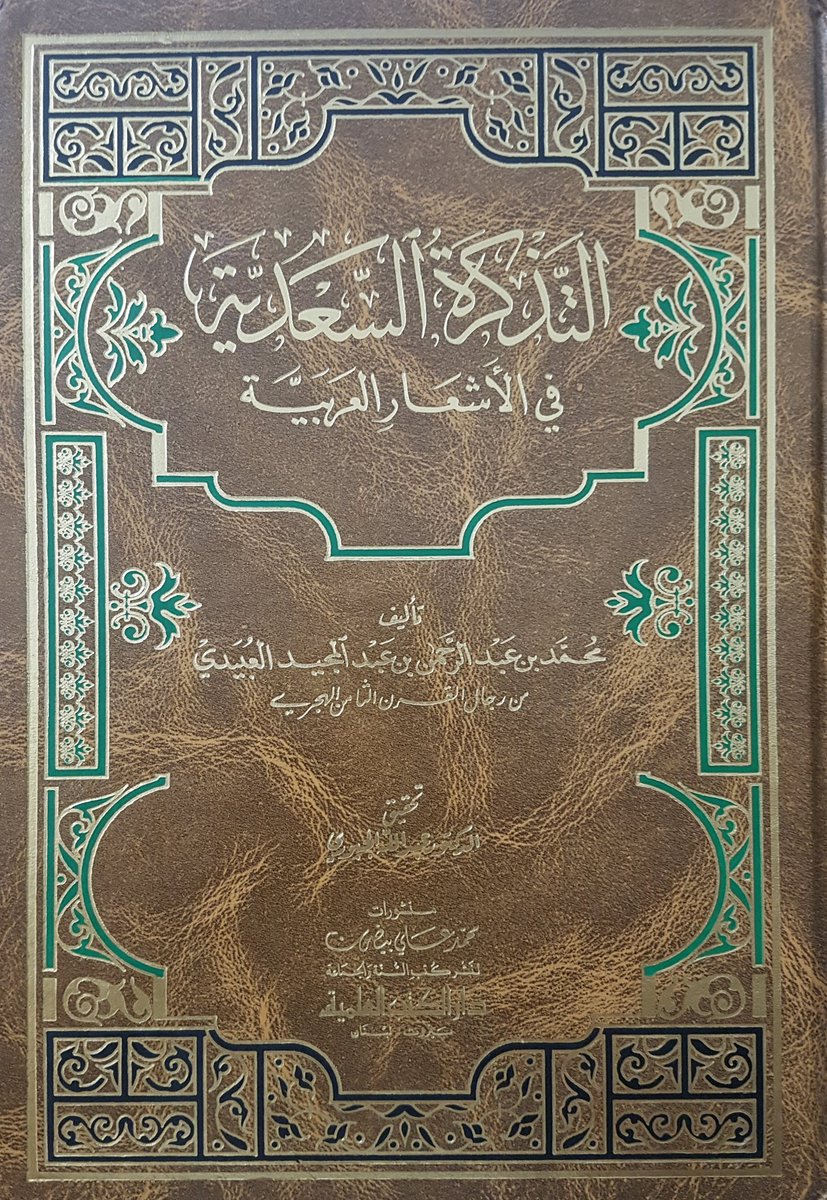 التَّذكرَةُ ٱلسَّعْديَّة
في الأَشعَارِ العَربيَّة
تأليف
مُحمَّد بن عَبْد الرَّحمٰن بن عَبْد المجيد العُبَيدي
من رجال القرن الثامن الهجري
تحقيق
الدكتور عبد الله الجبوري
منشورات
محمد علي بيضون
لنشر كتب السنة والجماعة
دار الكتب العلمية
بيروت - لبنان